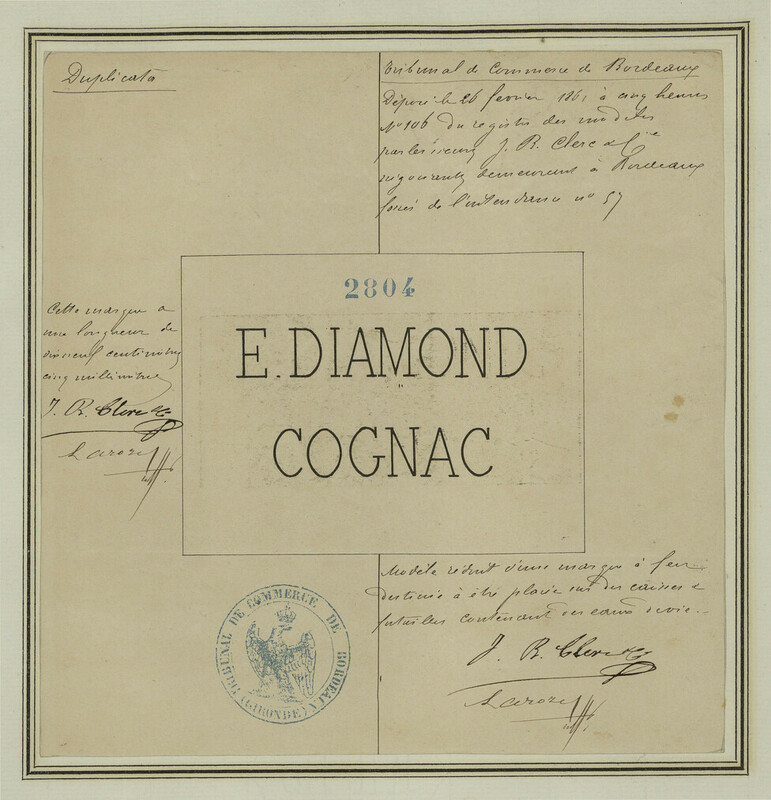 Duplicata
Tribunal de Commerce de Bordeaux
Déposé le 26 février 1861 à cinq heures
N° 106 du registre des modèles
par les sieurs J. B. Clerc & Cie
négociants demeurant à Bordeaux
fossés de l'intendance n° 57
2804
E. DIAMOND
COGNAC
Cette marque a
une longueur de
dixneuf centimètres
cinq millimètres
J. B. Clerc & C
TRIBUNAL DE COMMERCE DE BORDEAUX
(GIRONDE)
Modèle réduit d'une marque à feu
destinée à être placée sur des caisses &
futailles contenant des eaux de vie.
J. B. Clerc & C